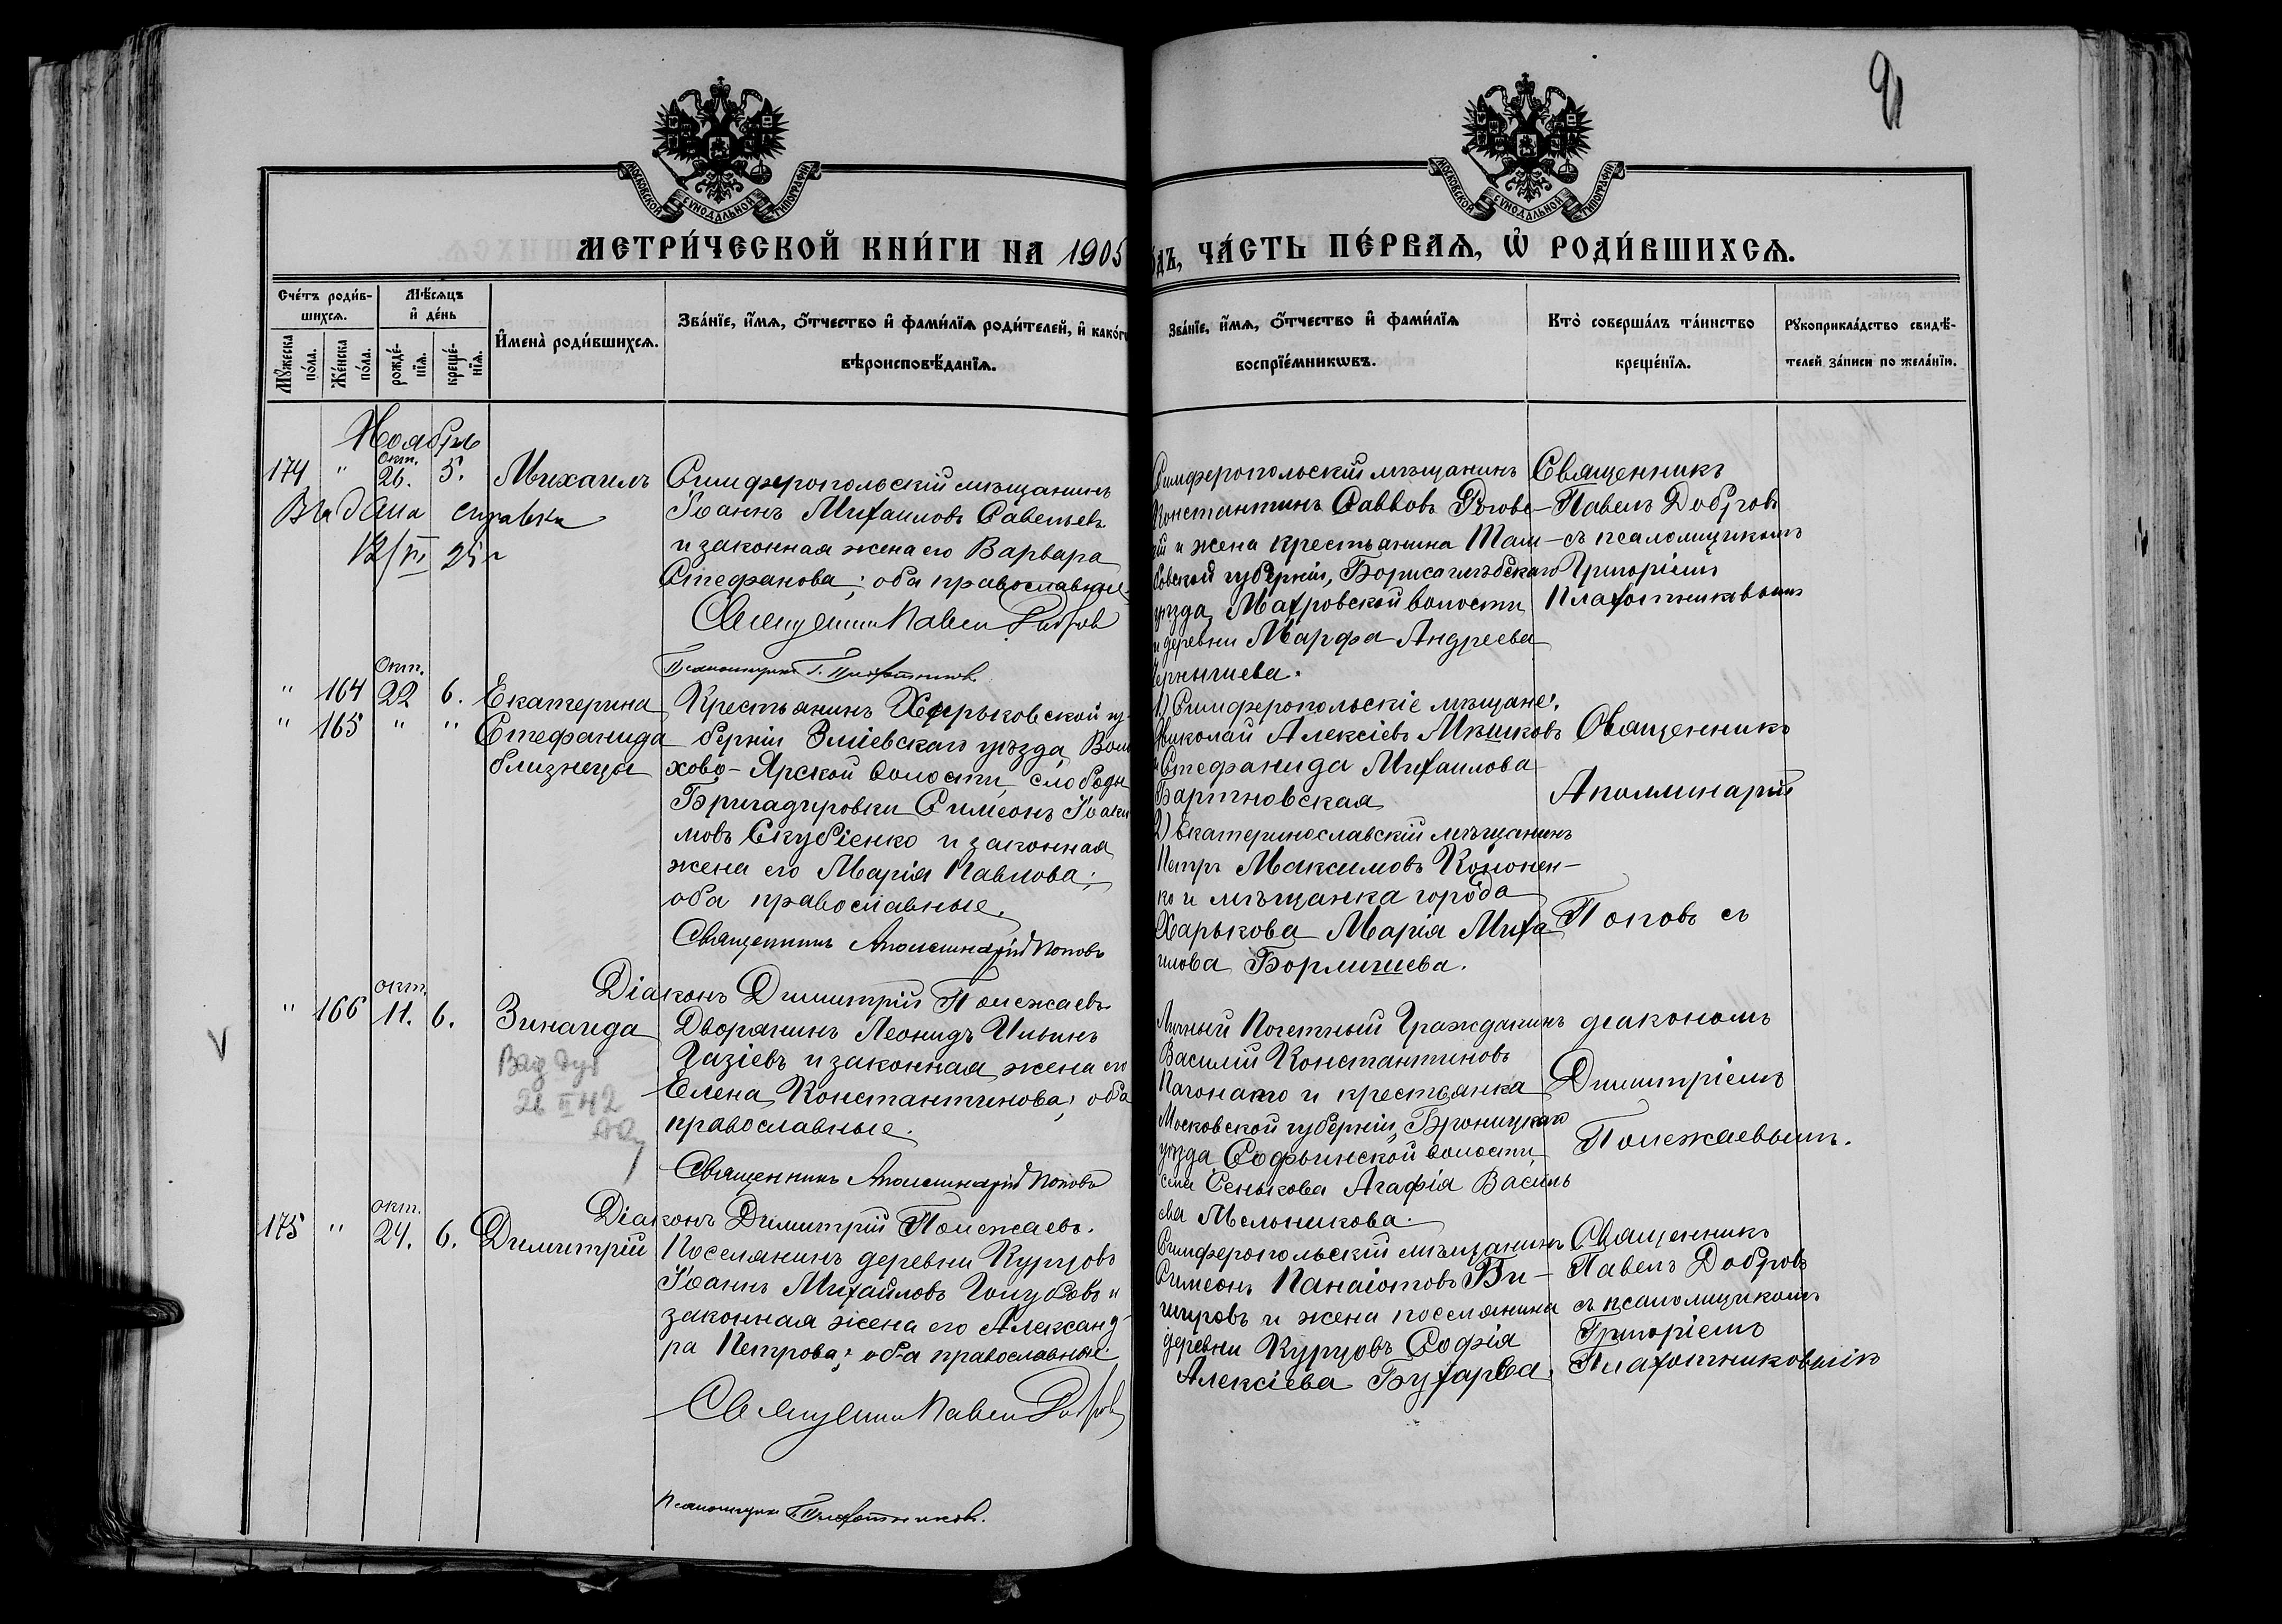 91
МОСКОВСКОЙ СУНОДАЛЬНОЙ ТИПОГРАФІИ
МОСКОВСКОЙ СУНОДАЛЬНОЙ ТИПОГРАФІИ
МЕТРИ́ЧЕСКОЙ КНИ́ГИ НА 1905
о́дъ, ЧА́СТЬ ПЕ́РВАѦ, Ѡ҆ РОДИ́ВШИХСѦ.
Сче́тъ роди́в-
шихсѧ.
Мꙋ́жеска по́ла.
Же́нска по́ла.
Мѣ́сѧцъ
и҆ де́нь
рожде́-
нїѧ.
креще́-
нїѧ.
И҆мена̀ роди́вшихсѧ.
Зва́нїе, и҆́мѧ, ѻ҆́тчество и҆ фами́лїѧ роди́телей, и҆ како́гѡ
вѣроисповѣ́данїѧ.
Зва́нїе, и҆́мѧ, ѻ҆́тчество и҆ фами́лїѧ
воспрїе́мникѡвъ.
Кто̀ соверша́лъ та́инство
креще́нїѧ.
Рꙋкоприкла́дство свидѣ́-
телей за́писи по жела́нїю.
Ноябрь
174 " окт. 26. 5. Михаилъ
Выдана справка
12/VI 25 г
Симферопольскій мѣщанинъ
Іоаннъ Михаиловъ Савельевъ
и законная жена его Варвара
Стефанова; оба православные.
Священникъ Павелъ Добровъ
Псаломщикъ Г. Плахотниковъ.
Симферопольскій мѣщанинъ
Константинъ Саввовъ Рогове-
кій и жена крестьянина Там-
бовской губерніи, Борисоглѣбскаго
уѣзда, Махровской волости
и деревни Марфа Андреева
Священникъ
Павелъ Добровъ
съ псаломщикомъ
Григоріемъ
Плахотниковымъ
" 164 Окт. 22 6. Екатерина
" 165 " " Стефанида
близнецы
Крестьянинъ Харьковской гу-
берніи Зміевскаго уѣзда, Воло
хово-Ярской волости, слободы
Бригадировки Симеонъ Іоаки
мовъ Скубіенко и законная
жена его Марія Павлова;
оба православные.
Священникъ Аполлинарій Поповъ
Діаконъ Димитрій Полежаевъ
1) Симферопольскіе мѣщане:
Николай Алексіевъ Мѣшковъ
и Стефанида Михаилова
2) Екатеринославскій мѣщанинъ
Петръ Максимовъ Кононен-
ко и мѣщанка города
Харькова Марія Миха
илова Бормишева.
Священникъ
Аполлинарій
Поповъ съ
діакономъ
Димитріемъ
Полежаевымъ.
" 166 окт. 11. 6. Зинаида
26 II 42
Дворянинъ Леонидъ Ильинъ
Газіевъ и законная жена его
Елена Константинова; оба
православные.
Священникъ Аполлинарій Поповъ
Діаконъ Димитрій Полежаевъ.
Личный Почетный Гражданинъ
Василій Константиновъ
и крестьянка
Московской губерніи, Бронницкаго
уѣзда Софьинской волости
села Сенькова Агафія Василь
ева Мельникова.
175 " окт. 24. 6. Димитрій
Поселянинъ деревни Курцовъ
Іоаннъ Михайловъ Голубовъ и
законная жена его Александ-
ра Петрова; оба православные
Священникъ Павелъ Добровъ
Псаломщикъ Г. Плахотниковъ.
Симферопольскій мѣщанинъ
Симеонъ Панаіотовъ Би-
шировъ и жена поселянина
деревни Курцовъ Софія
Алексіева Бухарева.
Священникъ
Павелъ Добровъ
съ псаломщикомъ
Григоріемъ
Плахотниковымъ